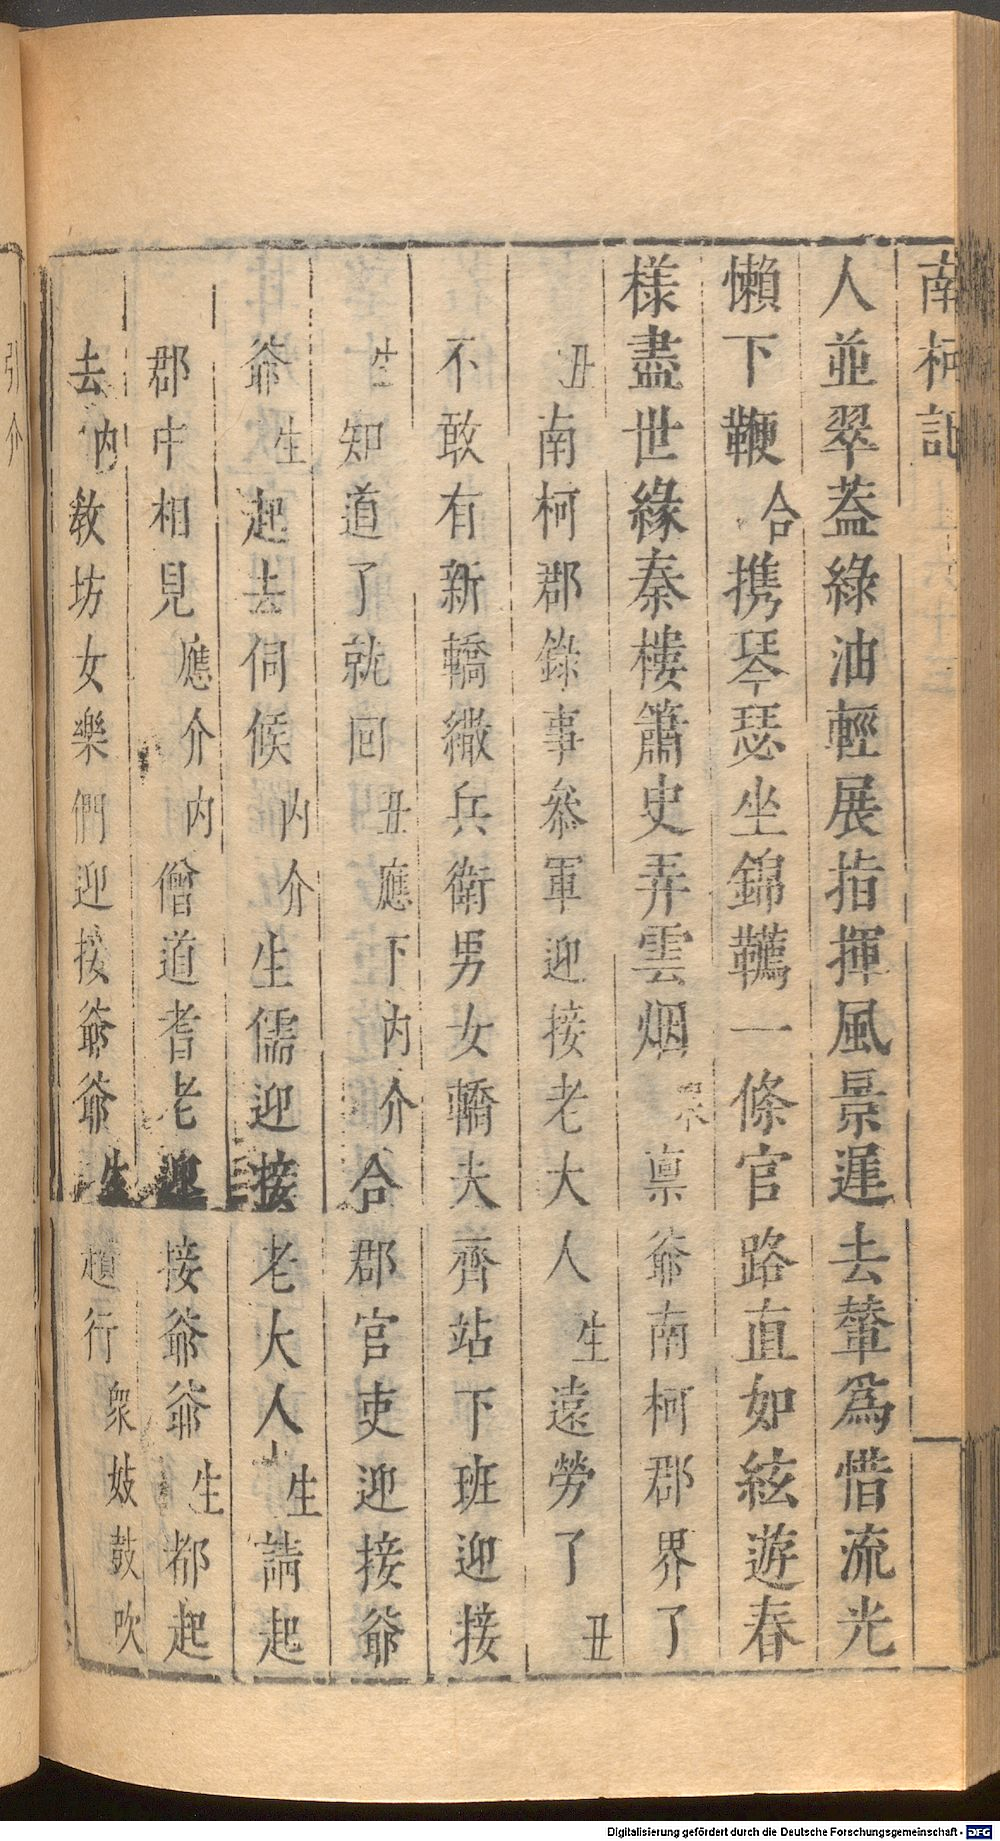 南柯記
人並翠葢綠油輕展指揮風景遲去輦爲惜流光
懶下鞭合携琴瑟坐錦韉一條官路直如絃遊春
樣盡世緣秦樓簫史弄雲烟 稟爺南柯郡界了
丑南柯郡錄事叅軍迎接老大人生遠勞了丑
不敢有新轎繖兵衛男女轎夫齊站下班迎接
生知道了就回丑應下內介合郡官吏迎接爺
爺生起去伺候內介生儒迎接老大人生請起
郡中相見應介內僧道耆老迎接爺爺生都起
去內教坊女樂們迎接爺爺生趲行衆妓鼓吹
引介
Digitalisierung gefördert durch die Deutsche Forschungsgemeinschaft - DFG